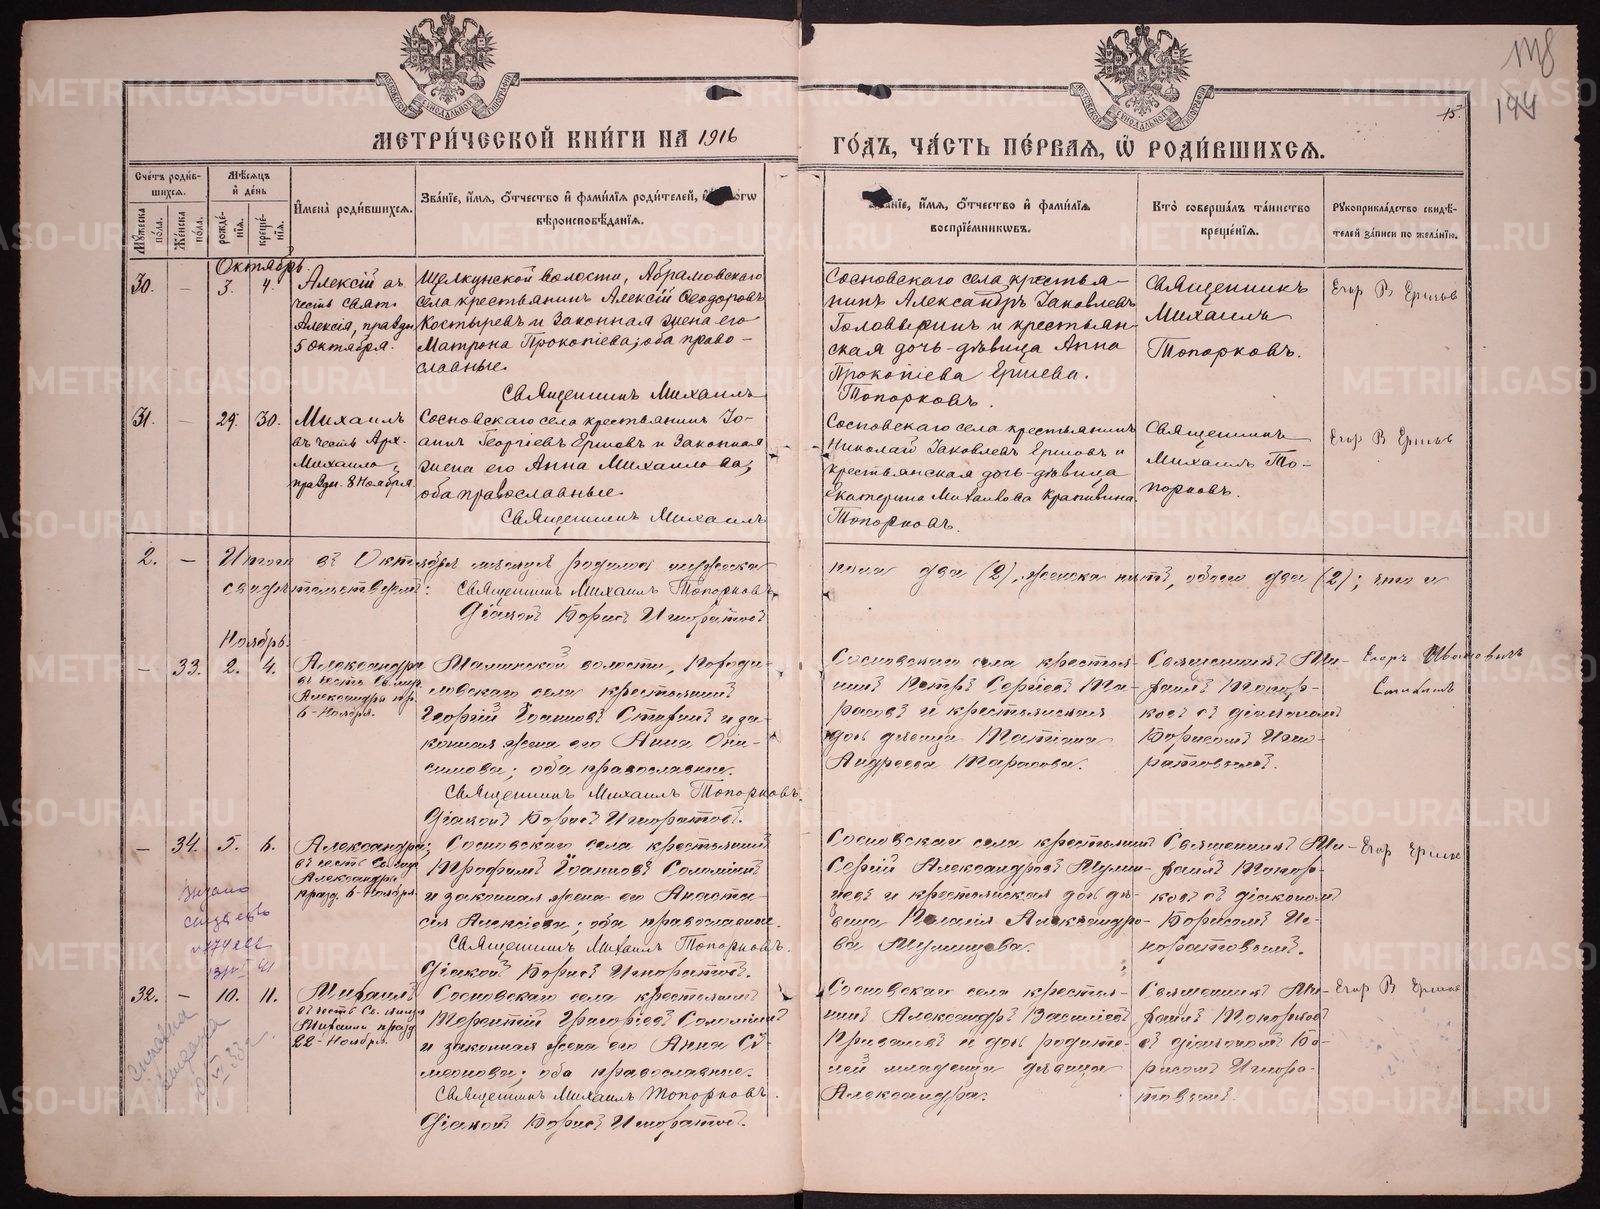 МЕТРИЧЕСКОЙ КНИГИ НА 1916
ГОДЪ, ЧАСТЬ ПЕРВАЯ, Ѡ РОДИВШИХСЯ.
15.
Счетъ родившихся.
Мужеска пола.
Женска пола.
Мѣсяцъ и день
рожденія.
крещенія.
Имена родившихся.
Званіе, имя, отчество и фамилія родителей, и
вѣроисповѣданія.
Званіе, имя, отчество и фамилія
воспріемниковъ.
Кто совершалъ таинство
крещенія.
Рукоприкладство свидѣ-
телей записи по желанію.
Октябрь
30. — 3. 4.
Алексій въ
честь свят.
Алексія, праздн.
5 Октября.
Щелкунской волости, Абрамовскаго
села крестьянинъ Алексій Ѳеодоровъ
Костыревъ и законная жена его
Матрона Прокопіева; оба право-
славные.
Священникъ Михаилъ
Сосновскаго села крестья-
нинъ Александръ Іаковлевъ
Головыринъ и крестьян-
ская дочь-дѣвица Анна
Прокопіева Ершева.
Топорковъ.
Священникъ
Михаилъ
Топорковъ.
Егор В Ершов
31. — 29. 30.
Михаилъ
въ честь Арх.
Михаила,
праздн. 8 Ноября
Сосновскаго села крестьянинъ Іо-
аннъ Георгіевъ Ершовъ и законная
жена его Анна Михаилова;
оба православные.
Священникъ Михаилъ
Сосновскаго села крестьянинъ
Николай Іаковлевъ Ершовъ и
крестьянская дочь-дѣвица
Екатерина Михаилова Крапивина
Топорковъ.
Священникъ
Михаилъ То-
порковъ.
Егор В Ершов
2. — Итого въ Октябрѣ мѣсяцѣ родилось мужеска
пола два (2), женска нѣтъ, обоего два (2); что и
свидѣтельствуемъ: Священникъ Михаилъ Топорковъ
Діаконъ Борисъ Игноратовъ
Ноябрь.
— 33. 2. 4.
Александра
въ честь Св. мцы
Александры пр.
6 Ноября.
Маминской волости,
села крестьянинъ
Георгій Іоанновъ и за-
конная жена его Анна Они-
симова; оба православные.
Священникъ Михаилъ Топорковъ.
Діаконъ Борисъ Игноратовъ.
Сосновскаго села крестья-
нинъ Петръ Сергіевъ Та-
расовъ и крестьянская
дочь дѣвица Татіана
Андреева Тарасова.
Священникъ Ми-
хаилъ Топор-
ковъ съ діакономъ
Борисомъ Игно-
ратовымъ.
Егоръ Ивановичъ
— 34. 5. 6.
Александра;
въ честь Св. мцы
Александры
празд. 6 Ноября.
Сосновскаго села крестьянинъ
Трофимъ Іоанновъ Соломинъ
и законная жена его Анаста-
сія Алексіева; оба православные.
Священникъ Михаилъ Топорковъ.
Діаконъ Борисъ Игноратовъ.
Сосновскаго села крестьянинъ
Сергій Александровъ
и крестьянская дочь дѣ-
вица Пелагія Александро-
ва
Священникъ Ми-
хаилъ Топор-
ковъ съ діакономъ
Борисомъ Иг-
норатовымъ.
Егор Ершов
Выдано
32. — 10. 11.
Михаилъ
въ честь Св.
Михаила празд
22 Ноября.
Сосновскаго села крестьянинъ
Терентій Григоріевъ Соломинъ
и законная жена его Анна Си-
меонова; оба православные.
Священникъ Михаилъ Топорковъ.
Діаконъ Борисъ Игноратовъ.
Сосновскаго села крестья-
нинъ Александръ Василіевъ
Приваловъ и дочь родите-
лей младенца дѣвица
Александра.
Священникъ Ми-
хаилъ Топорковъ
съ діакономъ Бо-
рисомъ Игнора-
товымъ.
Егор В Ершов
METRIKI.GASO-URAL.RU